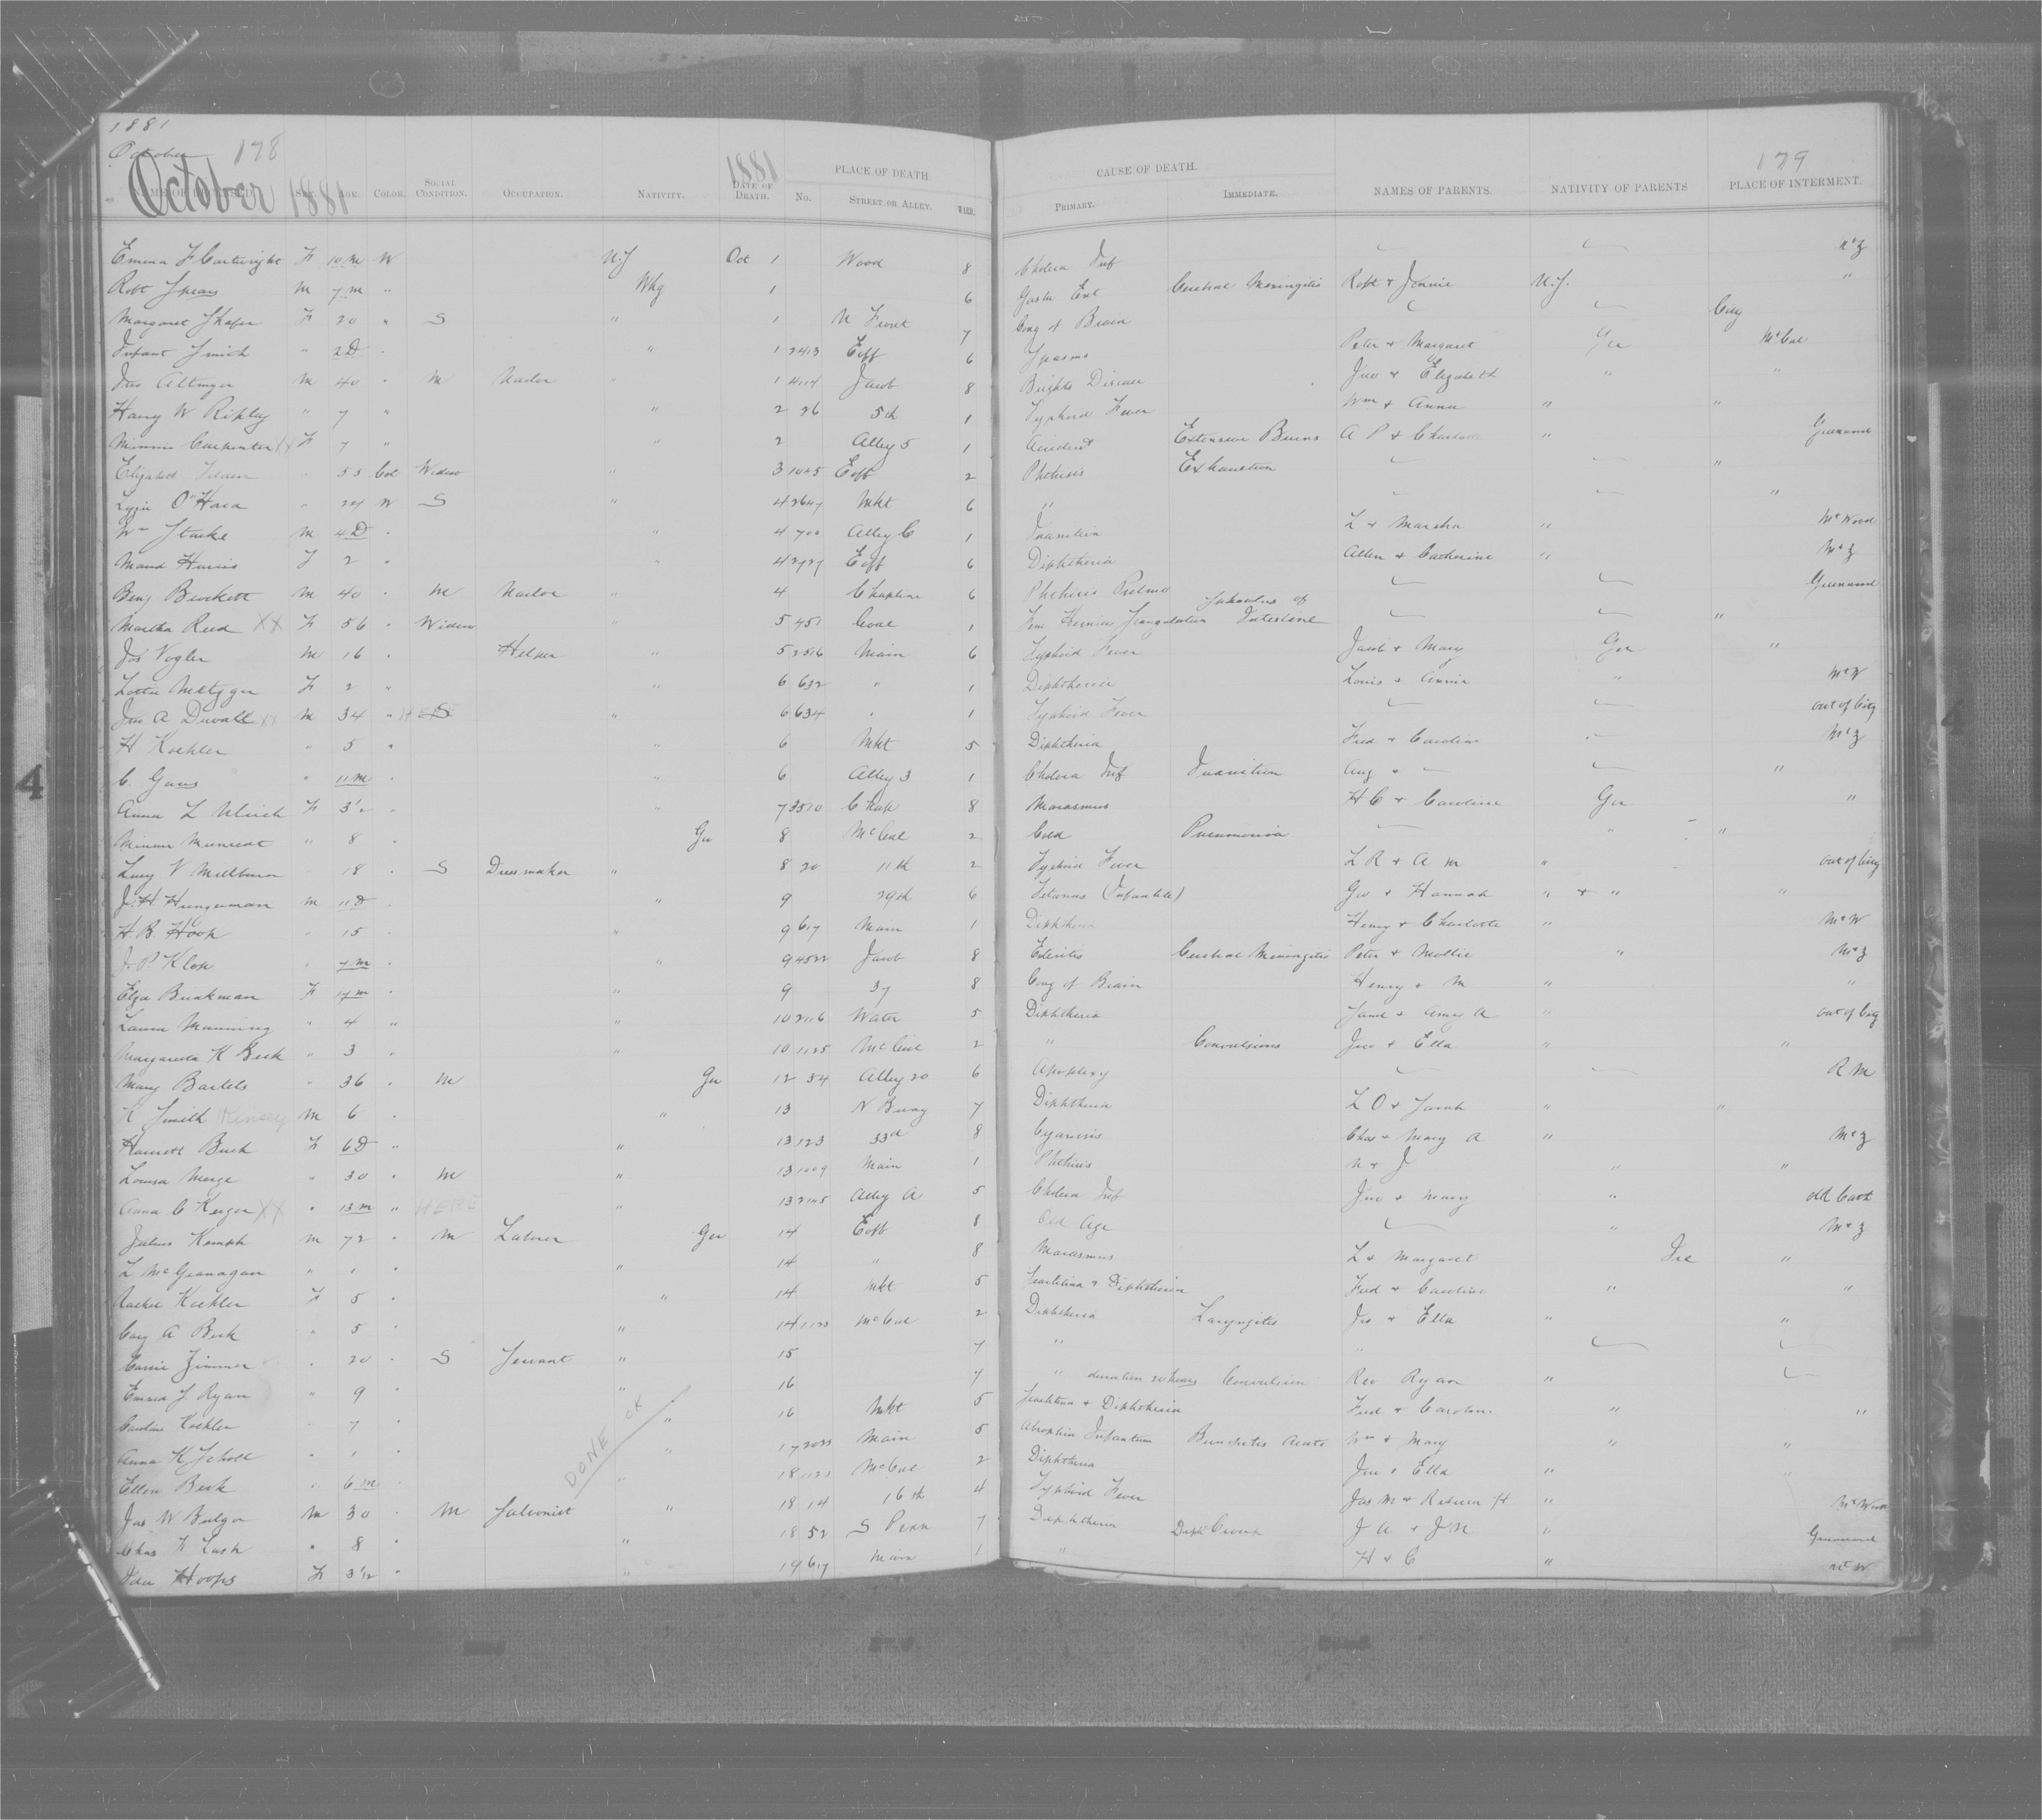 1881
October 178
October 1881 1881 179
NAME OF DECEASED. SEX. AGE. COLOR. SOCIAL CONDITION. OCCUPATION. NATIVITY. DATE OF DEATH. PLACE OF DEATH. No. STREET OR ALLEY. WARD. CAUSE OF DEATH. PRIMARY. IMMEDIATE. NAMES OF PARENTS. NATIVITY OF PARENTS PLACE OF INTERMENT.
Emma F Cartwright F 10 m W U.S Oct 1 Wood 8 Cholera Inf Mt Z
Robt Spears M 7 m " Whg 1 6 Gastr Ent Cerebral Meningitis Robt & Jennie U.S. "
Margaret Shafer F 20 " S " 1 N Front 7 Cong of Brain City
Infant Smith " 2D " " 1 2413 Eoff 6 Spasms Peter & Margaret Ger Mt Cal
Jno Altmyer M 40 " M Nailor " 1 4114 Jacob 8 Brights Disease Jno & Elizabeth " "
Harry W Ripley " 7 " " 2 26 5th 1 Typhoid Fever Wm & Anna " "
Minnie Carpenter XX F 7 " " 2 Alley 5 1 Accident Extensive Burns A P & Charlotte " Greenwood
Elizabeth " 55 Col Widow " 3 1045 Eoff 2 Phthisis Exhaustion "
Lizzie O'Hara " 24 W S " 4 2647 Mkt 6 " "
Wm Starke M 4D " " 4 700 Alley C 1 Inanition L & Martha " Mt Wood
Maud Harris F 2 " " 4 2727 Eoff 6 Diphtheria Allen & Catherine " Mt Z
Benj Brockett M 40 " M Nailor " 4 Chapline 6 Phthisis Pulmo Greenwood
Martha Reed XX F 56 " Widow " 5 451 Coal 1 Fem Hernia Strangulation of Intestine "
Jos Vogler M 16 " Helper " 5 2516 Main 6 Typhoid Fever Jacob & Mary Ger "
Lottie Metzger F 2 " " 6 632 " 1 Diphtheria Louis & Annie " Mt W
Jno A Duvall XX M 34 " HERE S " 6 634 " 1 Typhoid Fever out of City
H Koehler " 5 " " 6 Mkt 5 Diphtheria Fred & Caroline Mt Z
C. Gaus " 11 m " " 6 Alley 3 1 Cholera Inf Inanition Aug & "
Anna L Ulrich F 3½ " " 7 3510 Chap 8 Marasmus H C & Caroline Ger "
Minnie " 8 " Ger 8 McCul 2 Cold Pneumonia " "
Lucy V Millburn " 18 " S Dressmaker " 8 20 11th 2 Typhoid Fever L R & A M " out of City
J. H Hungerman M 11D " " 9 29th 6 Tetanus (Infantile) Geo & Hannah " & " "
H B Hook " 15 " " 9 617 Main 1 Diphtheria Henry & Charlotte " Mt W
J. P. Klop " 7 m " " 9 4522 Jacob 8 Enteritis Cerebral Meningitis Peter & Mollie " Mt Z
Elza Brinkman F 17 m " " 9 37 8 Cong of Brain Henry & M " "
Laura Manning " 4 " " 10 2116 Water 5 Diphtheria Saml & Amy A " out of City
Margaretta K Beck " 3 " " 10 1125 McCul 2 " Convulsions Jno & Ella " "
Mary Bartels " 36 " M Ger 12 54 Alley 20 6 Apoplexy R M
K Smith Kinsey M 6 " " 13 N Bway 7 Diphtheria L O & Sarah " "
Harriett Buch F 6D " " 13 123 33d 8 Cyanosis Chas & Mary A " Mt Z
Louisa Merge " 30 " M " 13 1009 Main 1 Phthisis N & J " "
Anna C Kerger XX " 13 m " HERE " 13 2145 Alley A 5 Cholera Inf Jno & Mary " old Cath
Julius Kemph M 72 " M Laborer Ger 14 Eoff 8 Old Age " Mt Z
L McGranagan " 1 " " 14 " 8 Marasmus L & Margaret Ire "
Rachel Koehler F 5 " " 14 Mkt 5 Scarlatina & Diphtheria Fred & Caroline " "
Cary A Beck " 5 " " 14 1123 McCul 2 Diphtheria Laryngitis Jno & Ella " "
Carrie Zimmer " 20 " S Servant " 15 7 " "
Emma J Ryan " 9 " " 16 7 " duration 20 hours Convulsion Rev Ryan "
Caroline Koehler " 7 " DONE OK " 16 Mkt 5 Scarlatina & Diphtheria Fred & Caroline " "
Anna K Scholl " 1 " " 17 2033 Main 5 Atrophia Infantum Bronchitis Acute Wm & Mary " "
Ellen Beck " 6 m " " 18 1121 McCul 2 Diphtheria Jno & Ella " "
Jas W Bulger M 30 " M Saloonist " 18 14 16th 4 Typhoid Fever Jas M & H " Mt Wood
Chas F Lash " 8 " " 18 52 S Penn 7 Diphtheria Diph Croup J A & J N " Greenwood
Ida Hoops F 3½ " " 19 617 Main 1 " H & C " Mt W
4 4